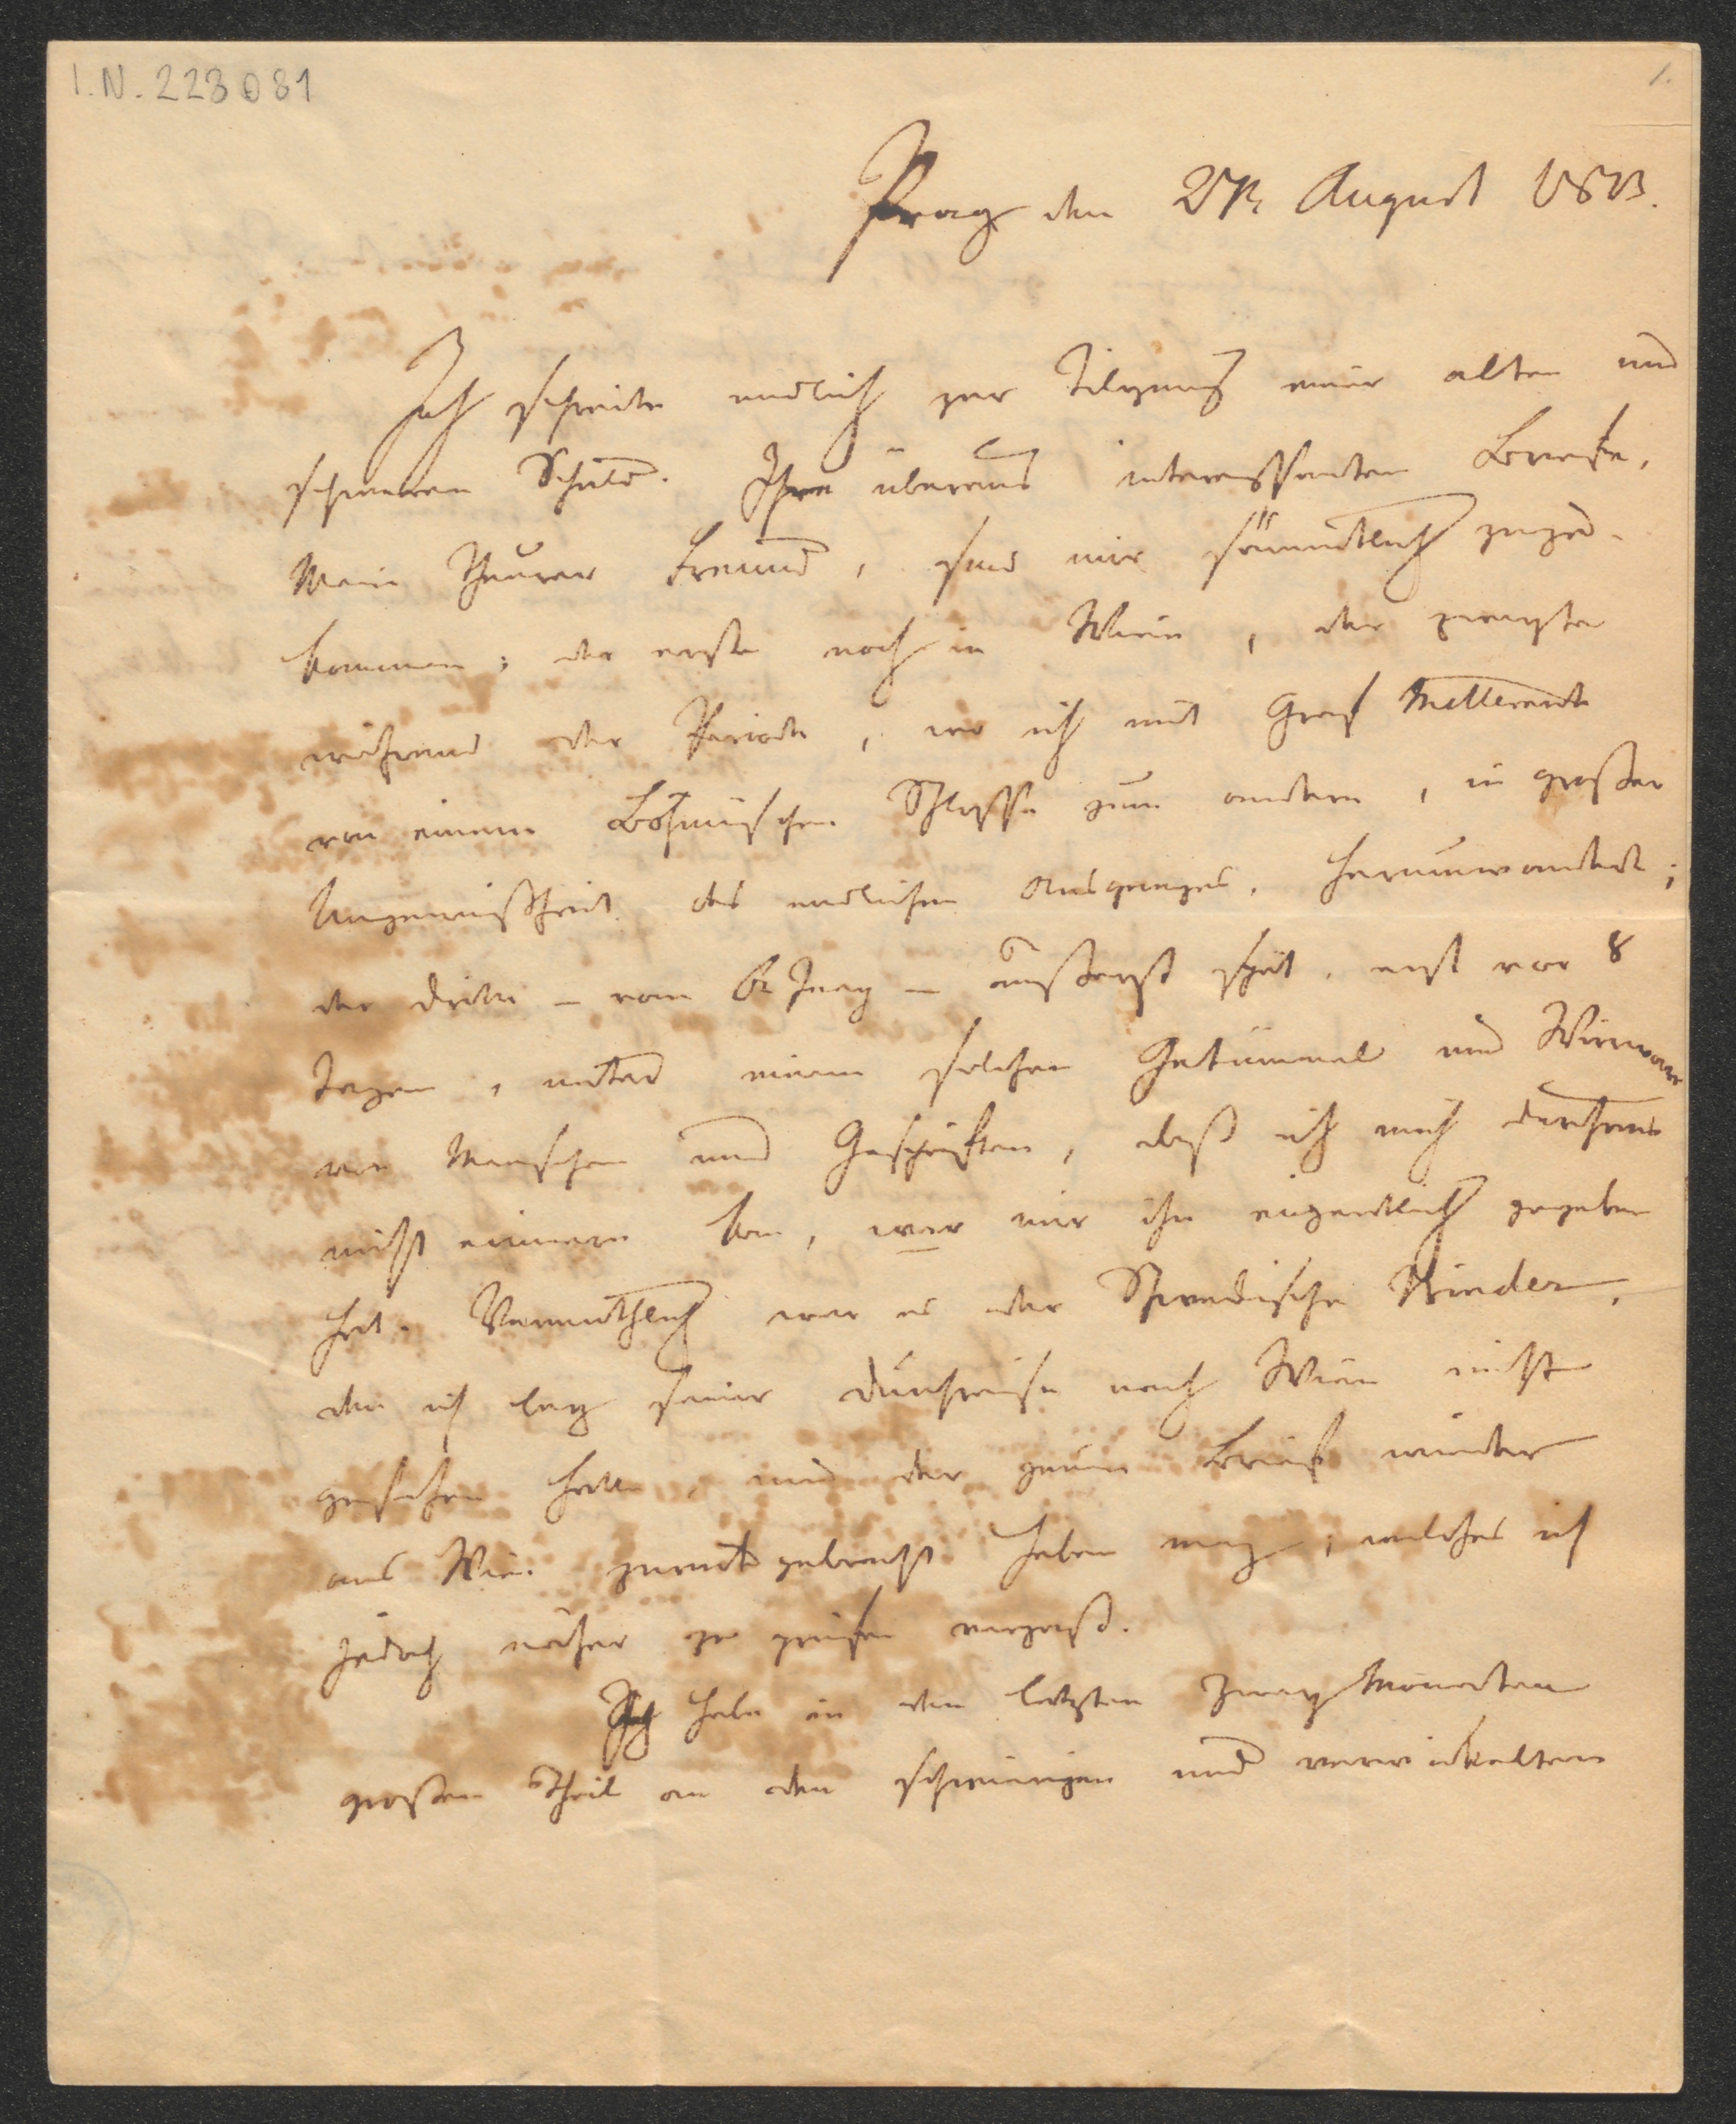 I.N. 223081
1.
Prag den August 1813.
Ich schreite endlich zur Tilgung einer alten und
schweren Schuld. Ihre überaus interessanten Briefe,
Mein Theurer Freund, sind mir sämmtlich zuge-
kommen; der erste noch in Wien, der zweyte
während der Periode, wo ich mit Graf Metternich
von einem Böhmischen Schlosse zum andern, in großer
Ungewißheit des endlichen Ausganges, herumwanderte;
der dritte – vom – äußerst spät, erst vor 8
Tagen, unter einem solchen Getümmel und Wirrwarr
von Menschen und Geschäften, daß ich mich durchaus
nicht erinnern kan, wer mir ihn eigentlich gegeben
hat. Vermuthlich war es der Schwedische
den ich bey seiner Durchreise nach Wien nicht
gesehen hatte, und der Brief wieder
aus Wien zurückgebracht haben mag; welches ich
jedoch näher zu prüfen vergaß.
Ich habe in den letzten zwey Monaten
großen Theil an den schwierigen und verwickelten